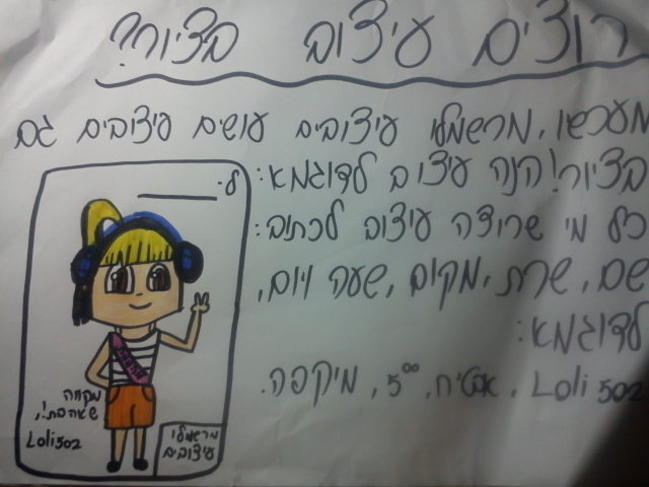 רוצים עיצוב בציור?
מעכשו, מרשמלו עיצובים עושים עיצובים גם
בציור! הנה עיצוב לדוגמא:
כל מי שרוצה עיצוב לכתוב:
שם, שרת, מקום, שעה ויום,
לדוגמא:
Loli 502, אטיח, 5⁰⁰, מיקפה.
ל-
מקווה
שאהבת!,
Loli502
מרשמלו
עיצובים